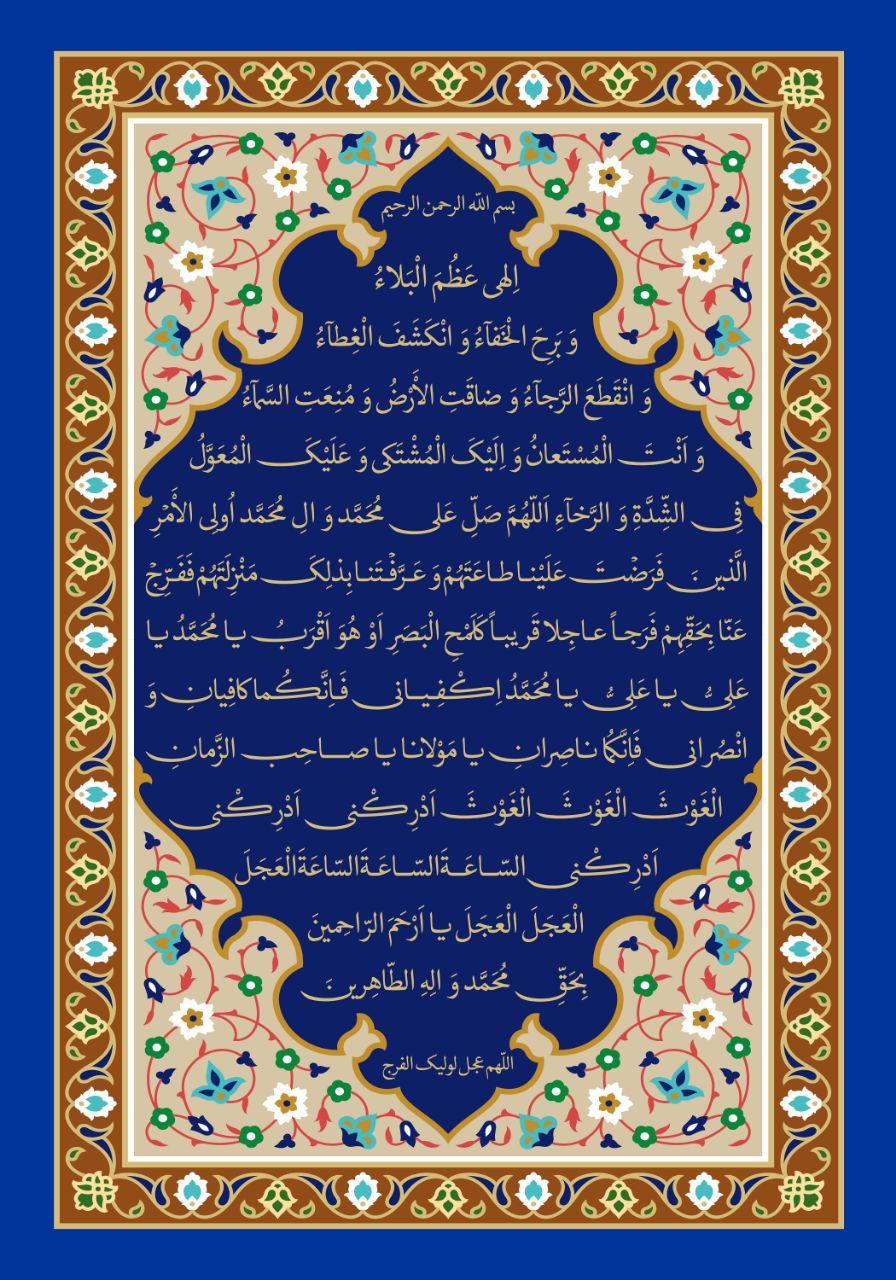 بسم الله الرحمن الرحیم
اِلهی عَظُمَ الْبَلاءُ
وَ بَرِحَ الْخَفآءُ وَ انْکَشَفَ الْغِطآءُ
وَ انْقَطَعَ الرَّجآءُ وَ ضاقَتِ الأَرْضُ وَ مُنِعَتِ السَّمآءُ
وَ اَنْتَ الْمُسْتَعانُ وَ اِلَیْکَ الْمُشْتَکی وَ عَلَیْکَ الْمُعَوَّلُ
فِی الشِّدَّةِ وَ الرَّخآءِ اَللّهُمَّ صَلِّ عَلی مُحَمَّد وَ الِ مُحَمَّد اُولِی الأَمْرِ
الَّذینَ فَرَضْتَ عَلَیْنا طاعَتَهُمْ وَ عَرَّفْتَنا بِذلِکَ مَنْزِلَتَهُمْ فَفَرِّجْ
عَنّا بِحَقِّهِمْ فَرَجاً عاجِلا قَریباً کَلَمْحِ الْبَصَرِ اَوْ هُوَ اَقْرَبُ یا مُحَمَّدُ یا
عَلِیُّ یا عَلِیُّ یا مُحَمَّدُ اِکْفِیانی فَاِنَّکُما کافِیانِ وَ
انْصُرانی فَاِنَّکُما ناصِرانِ یا مَوْلانا یا صاحِبَ الزَّمانِ
الْغَوْثَ الْغَوْثَ الْغَوْثَ اَدْرِکْنی اَدْرِکْنی
اَدْرِکْنی السّاعَةَ السّاعَةَ السّاعَةَ الْعَجَلَ
الْعَجَلَ الْعَجَلَ یا اَرْحَمَ الرّاحِمینَ
بِحَقِّ مُحَمَّد وَ الِهِ الطّاهِرینَ
اللّهم عجل لولیک الفرج